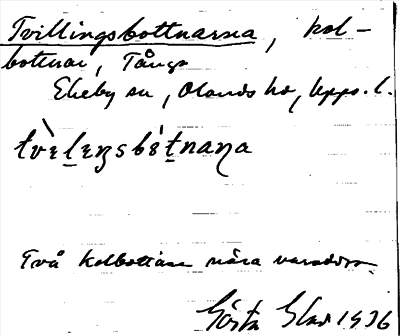 Tvillingsbottnarna, kol-
bottnar, Tånga
Ekeby sn, Olands hd, Upps. l.
Två kolbottnar nära varandra.
Gösta 1936